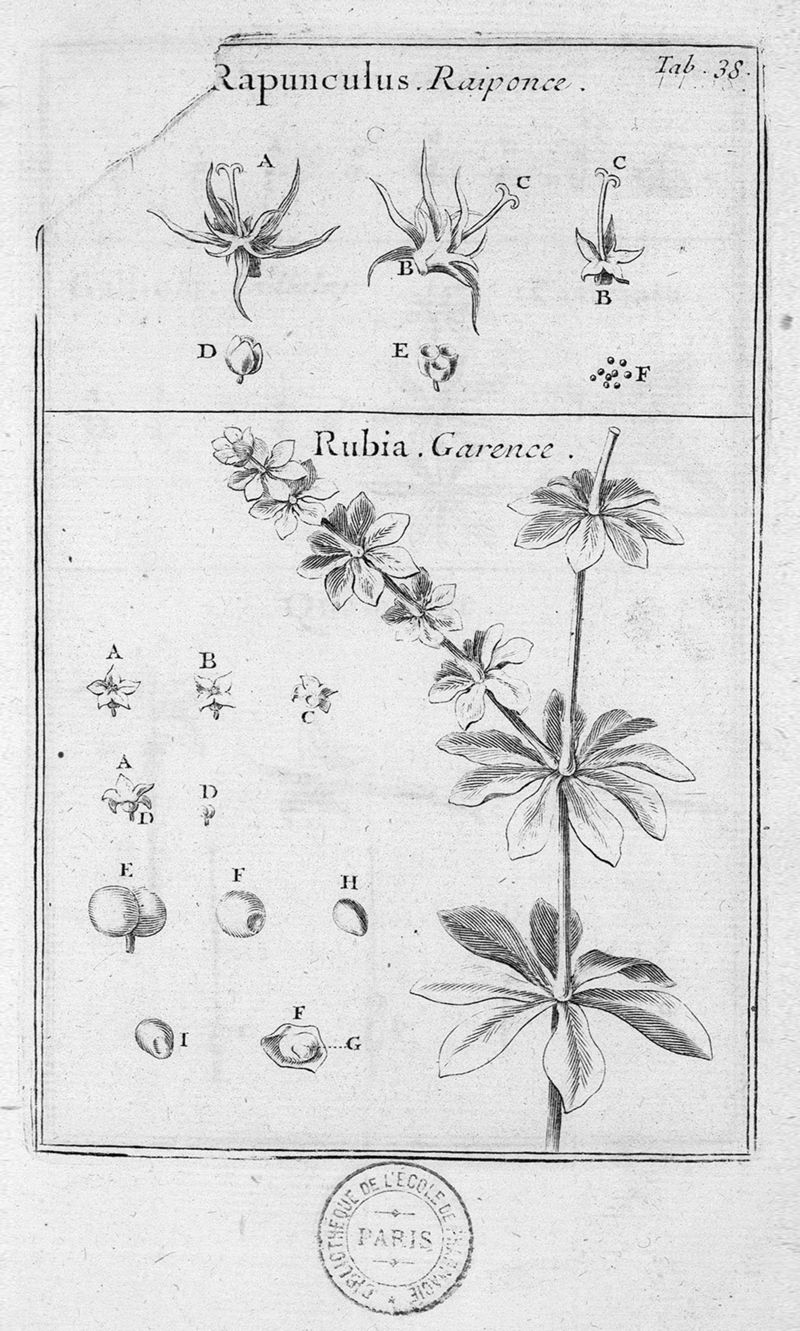 Rapunculus. Raiponce.
Tab. 38.
A
C
C
B
B
D
E
F
Rubia. Garence.
A
B
C
A
D
D
E
F
H
I
F
G
BIBLIOTHÈQUE DE L'ÉCOLE DE PHARMACIE
PARIS